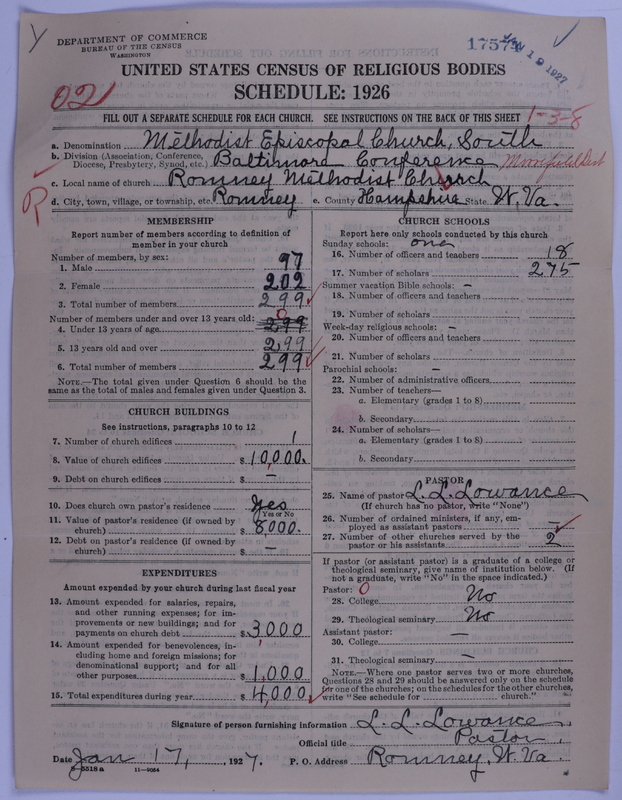 DEPARTMENT OF COMMERCE
BUREAU OF THE CENSUS
WASHINGTON
1757
JAN 19 1927
UNITED STATES CENSUS OF RELIGIOUS BODIES
SCHEDULE: 1926
02
FILL OUT A SEPARATE SCHEDULE FOR EACH CHURCH. SEE INSTRUCTIONS ON THE BACK OF THIS SHEET
1-3-8
a. Denomination Methodist Episcopal Church, South
b. Division (Association, Conference, Diocese, Presbytery, Synod, etc.) Baltimore Conference Moorefield Dist
c. Local name of church Romney Methodist Church
R
d. City, town, village, or township, etc. Romney e. County Hampshire State W. Va.
MEMBERSHIP
Report number of members according to definition of
member in your church
Number of members, by sex:
1. Male 97
2. Female 202
3. Total number of members 299
Number of members under and over 13 years old:
4. Under 13 years of age 299 0
5. 13 years old and over 299
6. Total number of members 299
NOTE.—The total given under Question 6 should be the
same as the total of males and females given under Question 3.
CHURCH BUILDINGS
See instructions, paragraphs 10 to 12
7. Number of church edifices 1
8. Value of church edifices $ 10,000.
9. Debt on church edifices $ —
10. Does church own pastor's residence Yes
Yes or No
11. Value of pastor's residence (if owned by
church) $ 8,000.
12. Debt on pastor's residence (if owned by
church) $ —
EXPENDITURES
Amount expended by your church during last fiscal year
13. Amount expended for salaries, repairs,
and other running expenses; for im-
provements or new buildings; and for
payments on church debt $ 3,000
14. Amount expended for benevolences, in-
cluding home and foreign missions; for
denominational support; and for all
other purposes $ 1,000
15. Total expenditures during year $ 4,000
CHURCH SCHOOLS
Report here only schools conducted by this church
Sunday schools: one
16. Number of officers and teachers 18
17. Number of scholars 275
Summer vacation Bible schools: —
18. Number of officers and teachers
19. Number of scholars
Week-day religious schools: —
20. Number of officers and teachers
21. Number of scholars
Parochial schools: —
22. Number of administrative officers
23. Number of teachers—
a. Elementary (grades 1 to 8)
b. Secondary
24. Number of scholars—
a. Elementary (grades 1 to 8)
b. Secondary
PASTOR
25. Name of pastor L. L. Lowance
(If church has no pastor, write "None")
26. Number of ordained ministers, if any, em-
ployed as assistant pastors —
27. Number of other churches served by the
pastor or his assistants 2
If pastor (or assistant pastor) is a graduate of a college or
theological seminary, give name of institution below. (If
not a graduate, write "No" in the space indicated.)
Pastor: 0
28. College No
29. Theological seminary No
Assistant pastor: —
30. College
31. Theological seminary —
NOTE.—Where one pastor serves two or more churches,
Questions 28 and 29 should be answered only on the schedule
for one of the churches; on the schedules for the other churches,
write "See schedule for church."
Signature of person furnishing information L. L. Lowance
Official title Pastor
Date Jan 17, 1927. P. O. Address Romney, W. Va.
8-5518a 11-4084